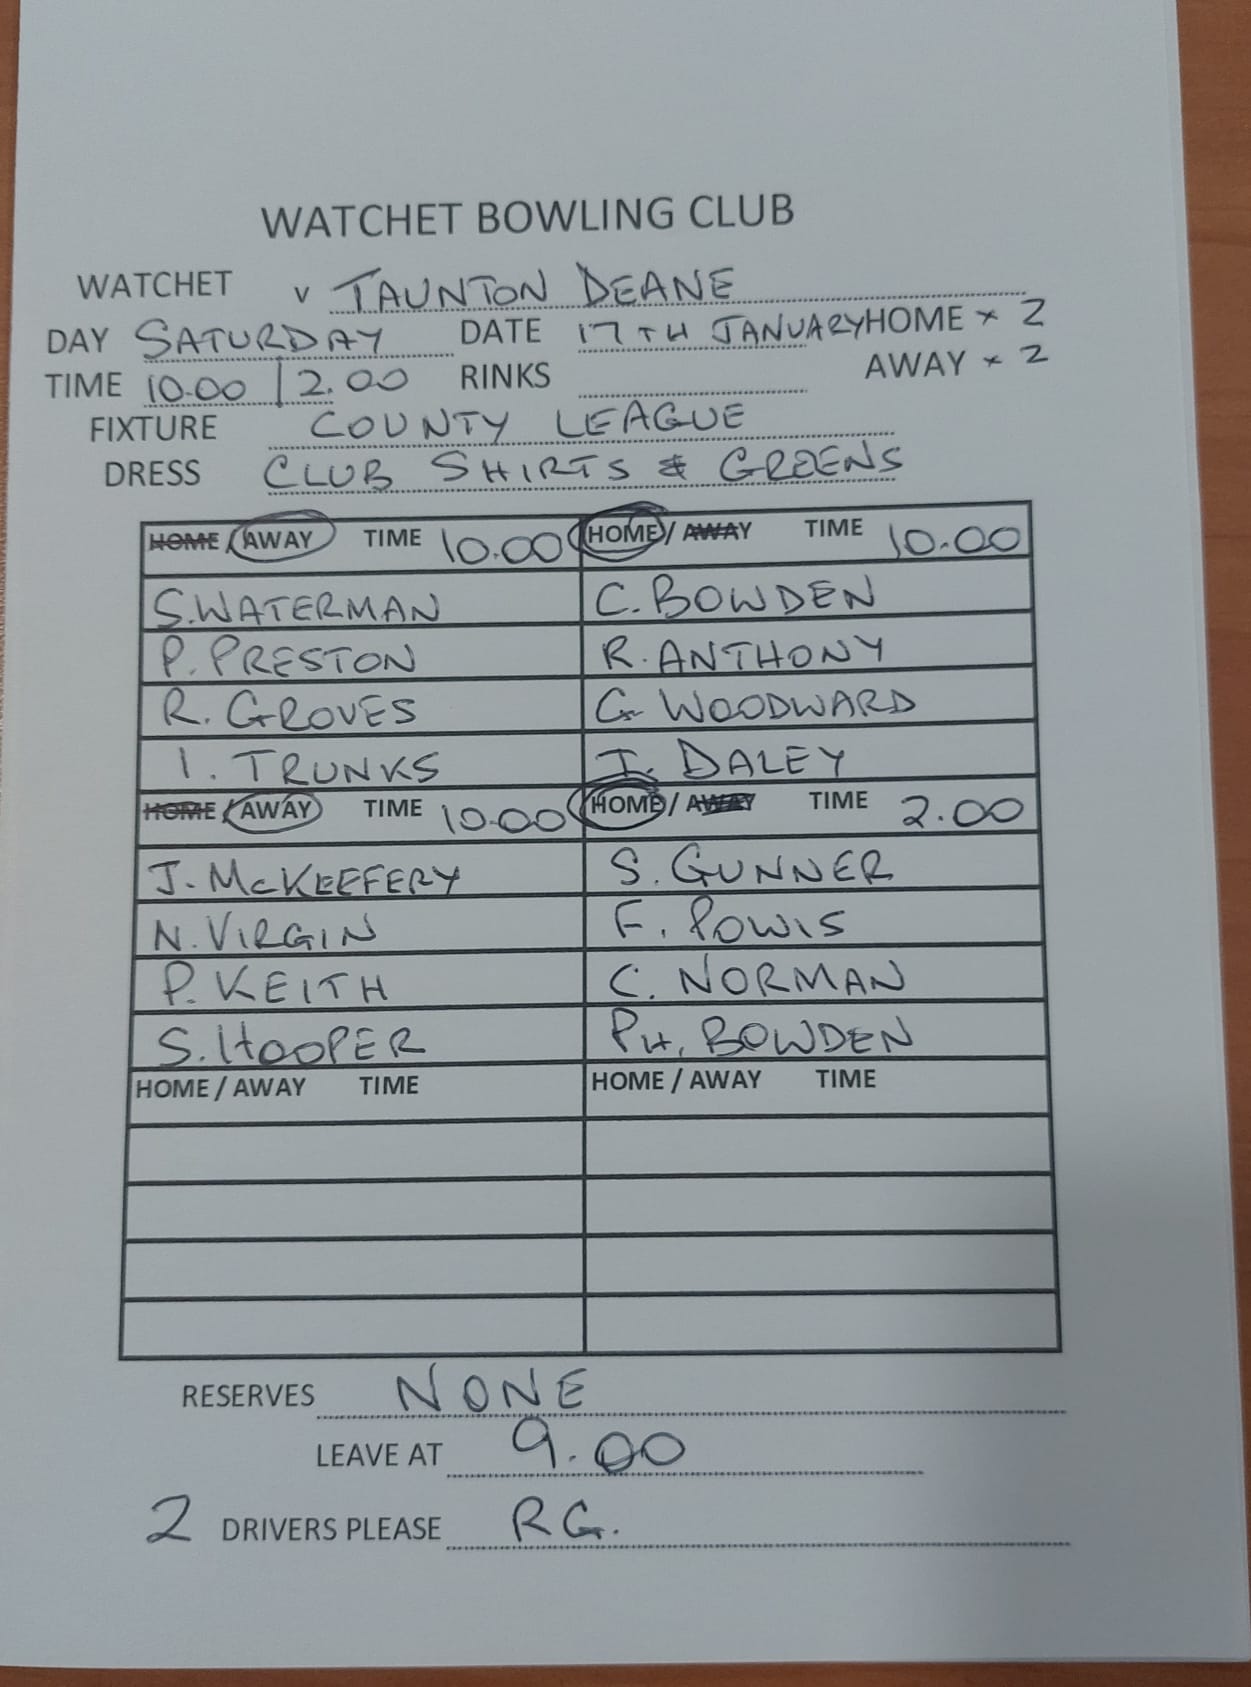 WATCHET BOWLING CLUB
WATCHET v TAUNTON DEANE
DAY SATURDAY DATE 17TH JANUARY HOME × 2
TIME 10.00 | 2.00 RINKS AWAY × 2
FIXTURE COUNTY LEAGUE
DRESS CLUB SHIRTS & GREENS
HOME / AWAY TIME 10.00 HOME / AWAY TIME 10.00
S. WATERMAN C. BOWDEN
P. PRESTON R. ANTHONY
R. GROVES G. WOODWARD
I. TRUNKS I. DALEY
HOME / AWAY TIME 10.00 HOME / AWAY TIME 2.00
J. McKEEFERY S. GUNNER
N. VIRGIN F. POWIS
P. KEITH C. NORMAN
S. HOOPER PH. BOWDEN
HOME / AWAY TIME HOME / AWAY TIME
RESERVES NONE
LEAVE AT 9.00
2 DRIVERS PLEASE RG.